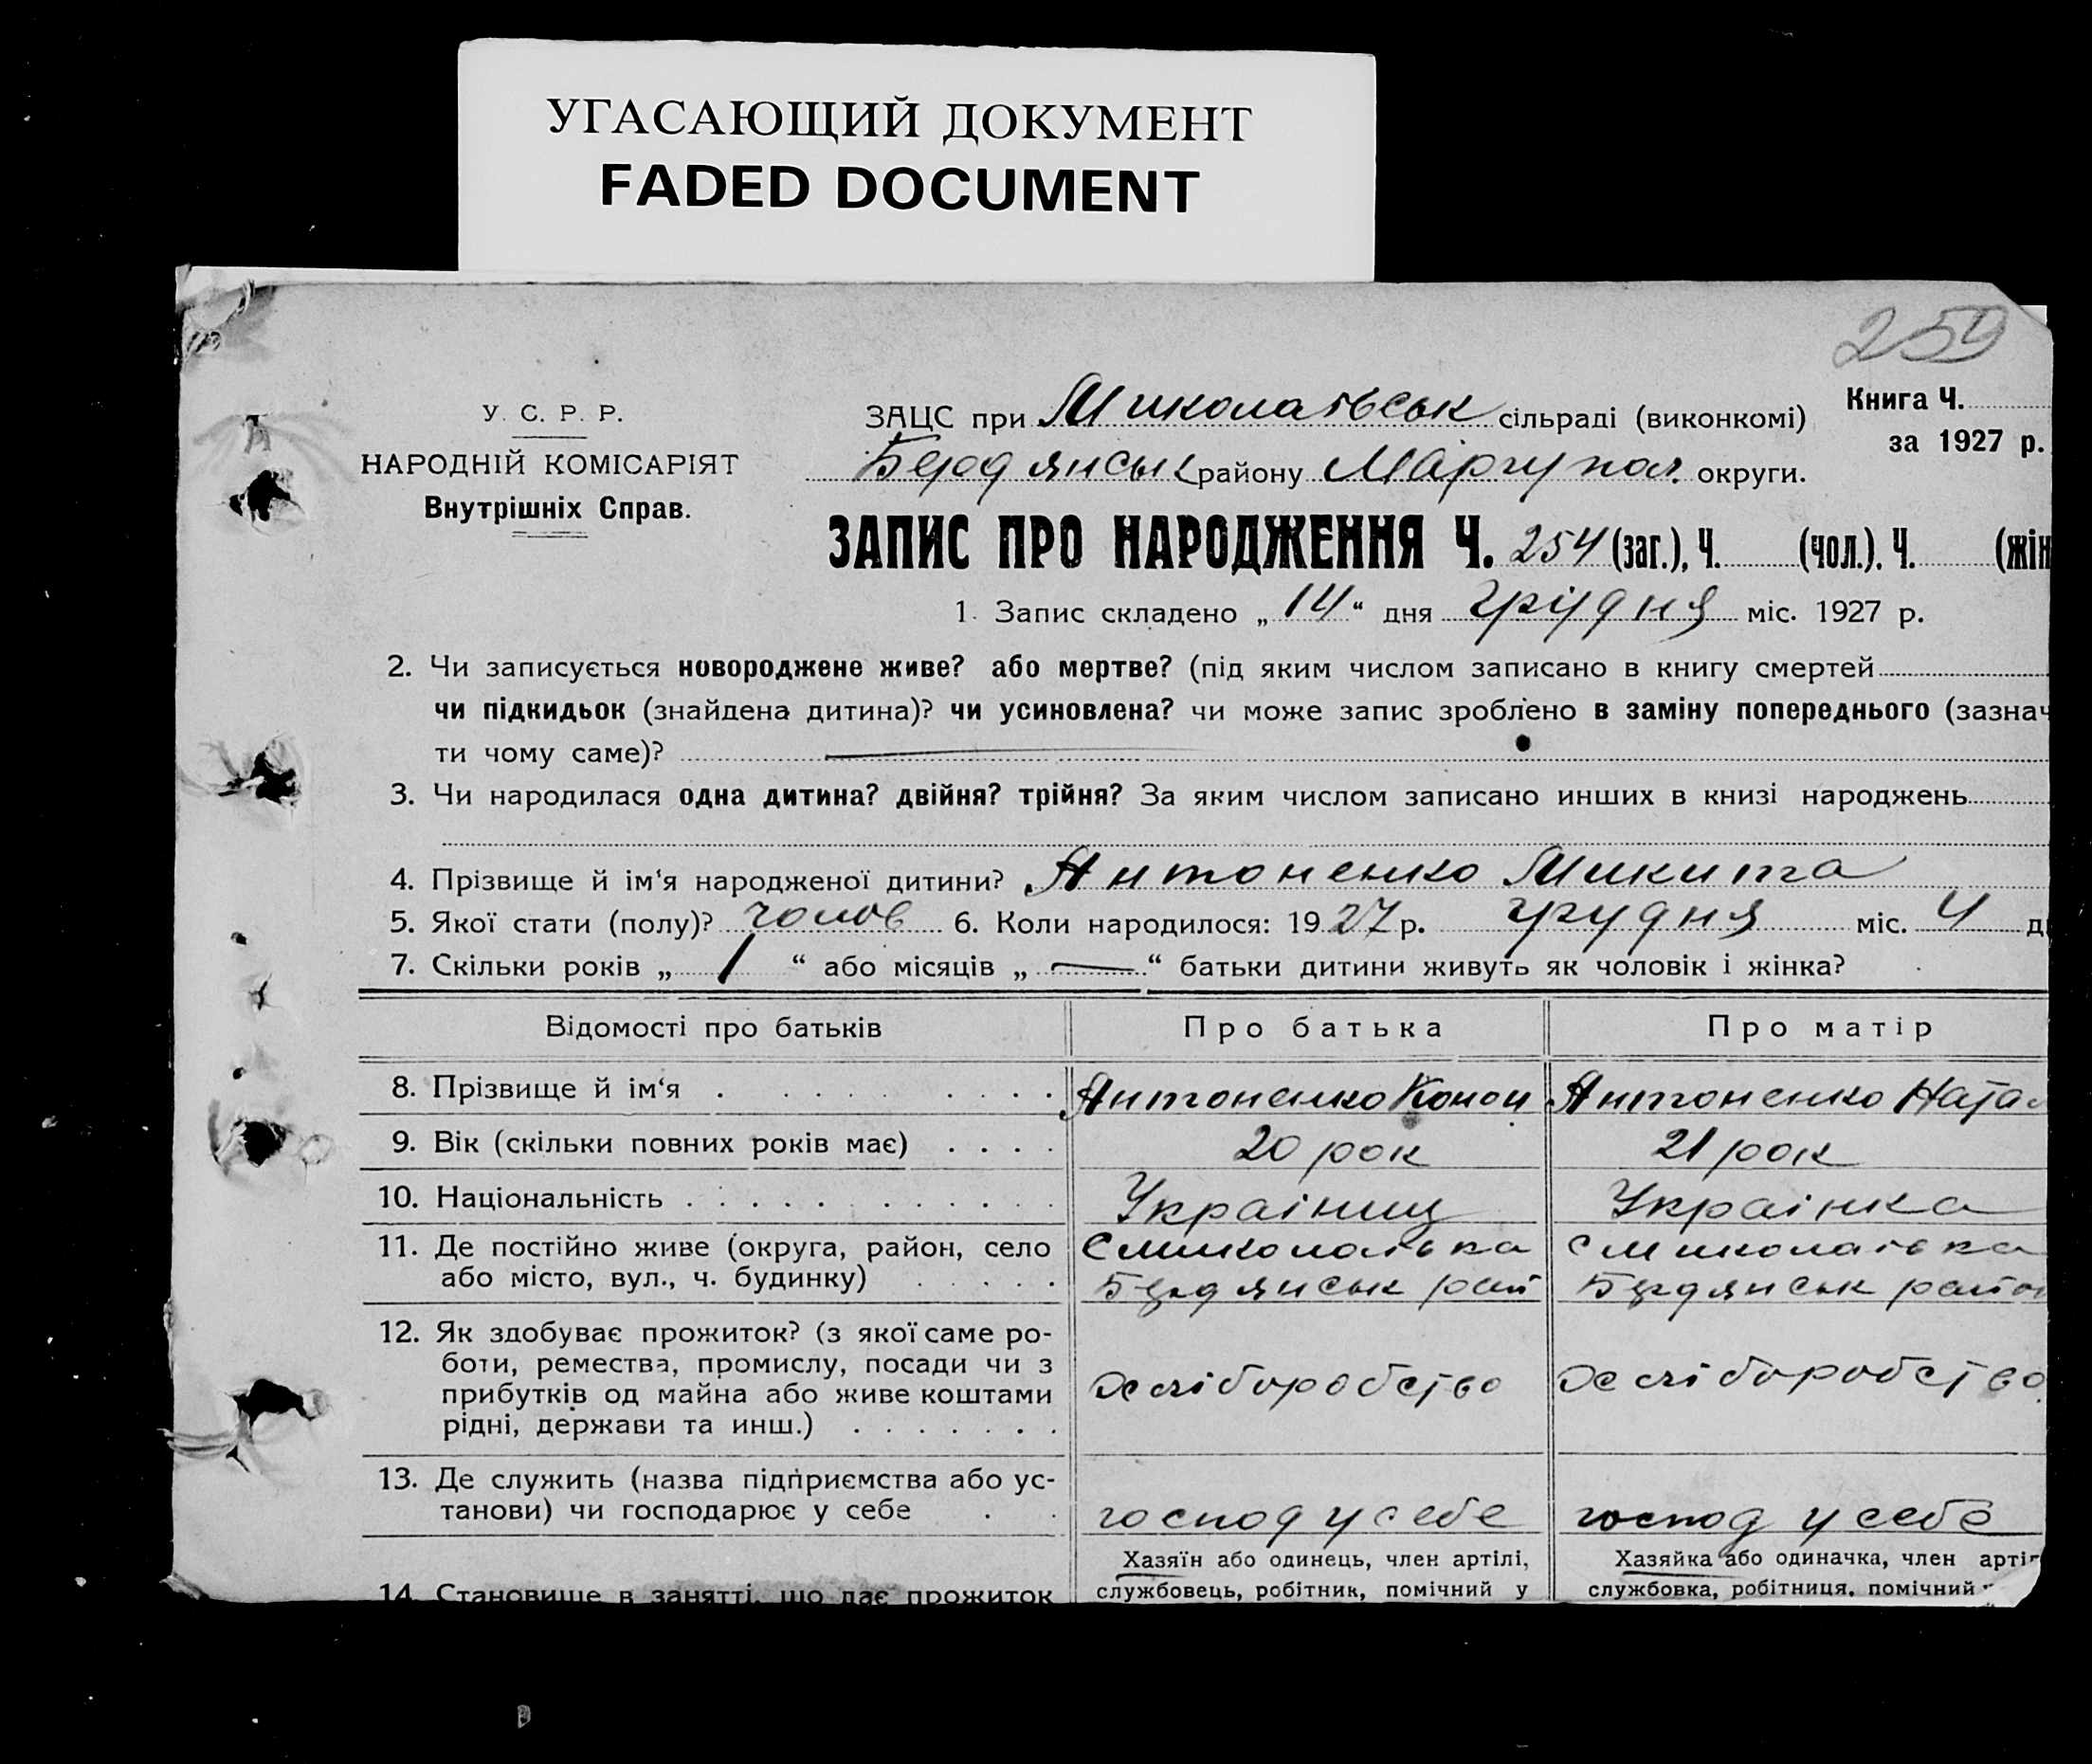 УГАСАЮЩИЙ ДОКУМЕНТ
FADED DOCUMENT
259
У. С. Р. Р.
НАРОДНІЙ КОМІСАРІЯТ
Внутрішніх Справ.
ЗАЦС при Миколаївськ сільраді (виконкомі)
Бердянськ району Маріупол. округи.
Книга Ч.
за 1927 р.
ЗАПИС ПРО НАРОДЖЕННЯ Ч. 254 (заг.), Ч. (чол.). Ч. (жін
1. Запис складено „14“ дня грудня міс. 1927 р.
2. Чи записується новороджене живе? або мертве? (під яким числом записано в книгу смертей
чи підкидьок (знайдена дитина)? чи усиновлена? чи може запис зроблено в заміну попереднього (зазнач
ти чому саме)?
3. Чи народилася одна дитина? двійня? трійня? За яким числом записано инших в книзі народжень
4. Прізвище й ім‘я народженої дитини? Антоненко Микита
5. Якої стати (полу)? чолов 6. Коли народилося: 1927 р. грудня міс. 4 д
7. Скільки років „1“ або місяців „—“ батьки дитини живуть як чоловік і жінка?
Відомості про батьків Про батька Про матір
8. Прізвище й ім‘я Антоненко Конон Антоненко Натал
9. Вік (скільки повних років має) 20 рок 21 рок
10. Національність Українец Українка
11. Де постійно живе (округа, район, село с Миколаївка с Миколаївка
або місто, вул., ч. будинку) Бердянськ рай Бердянськ район
12. Як здобуває прожиток? (з якої саме ро-
боти, ремества, промислу, посади чи з
прибутків од майна або живе коштами хліборобство хліборобство
рідні, держави та инш.)
13. Де служить (назва підприємства або ус-
танови) чи господарює у себе господ у себе господ у себе
Хазяїн або одинець, член артілі, Хазяйка або одиначка, член арті
14. Становище в занятті, що дає прожиток службовець, робітник, помічний у службовка, робітниця, помічний